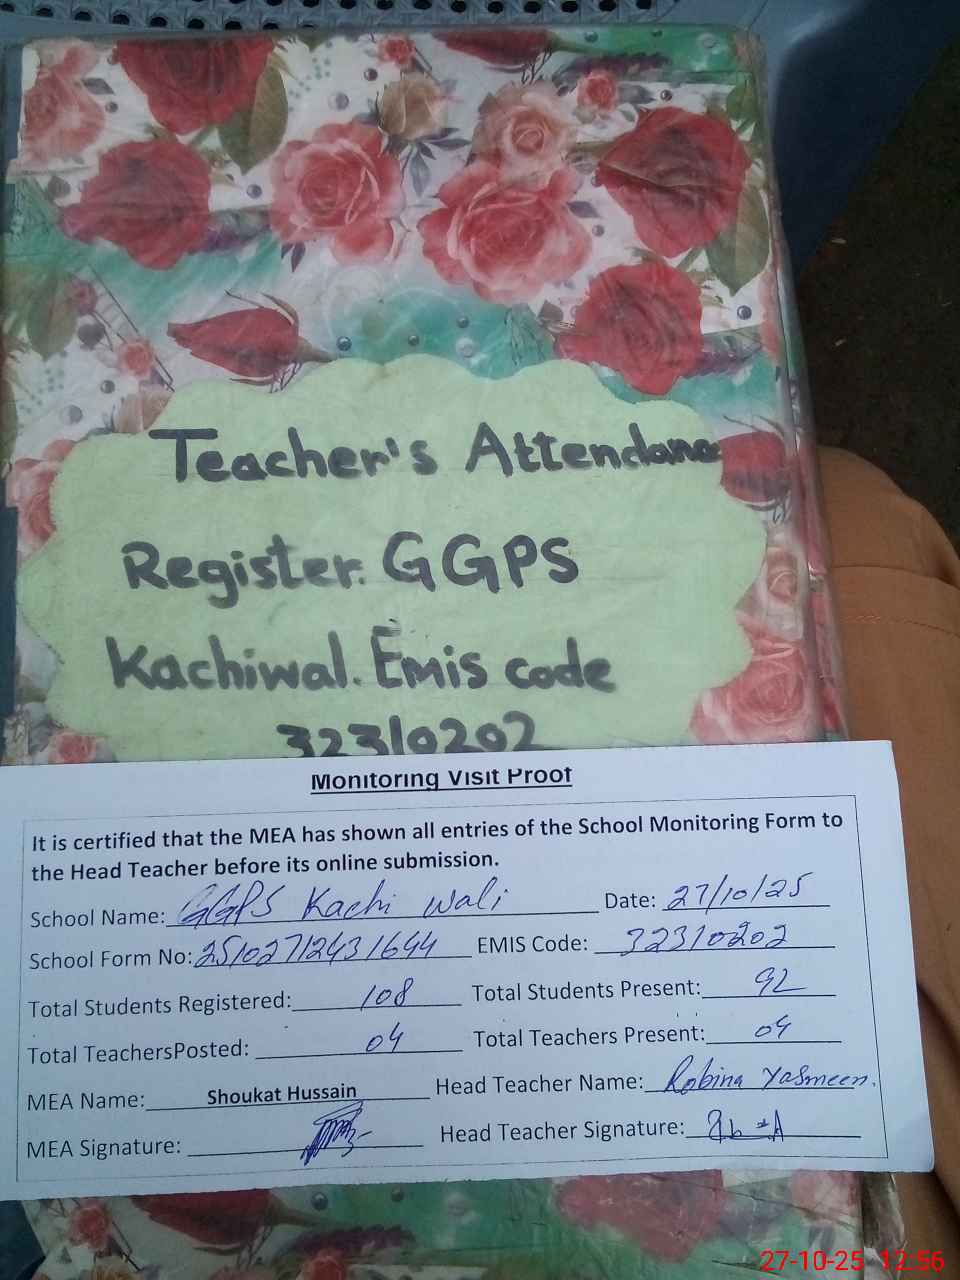 Teacher's Attendance
Register. GGPS
Kachiwal. Emis code
32310202
Monitoring Visit Proof
It is certified that the MEA has shown all entries of the School Monitoring Form to
the Head Teacher before its online submission.
School Name: GGPS Kachi wali Date: 27/10/25
School Form No: 2510271243 1644 EMIS Code: 32310202
Total Students Registered: 108 Total Students Present: 92
Total TeachersPosted: 04 Total Teachers Present: 04
MEA Name: Shoukat Hussain Head Teacher Name: Robina Yasmeen.
MEA Signature: Head Teacher Signature:
27-10-25 12:56